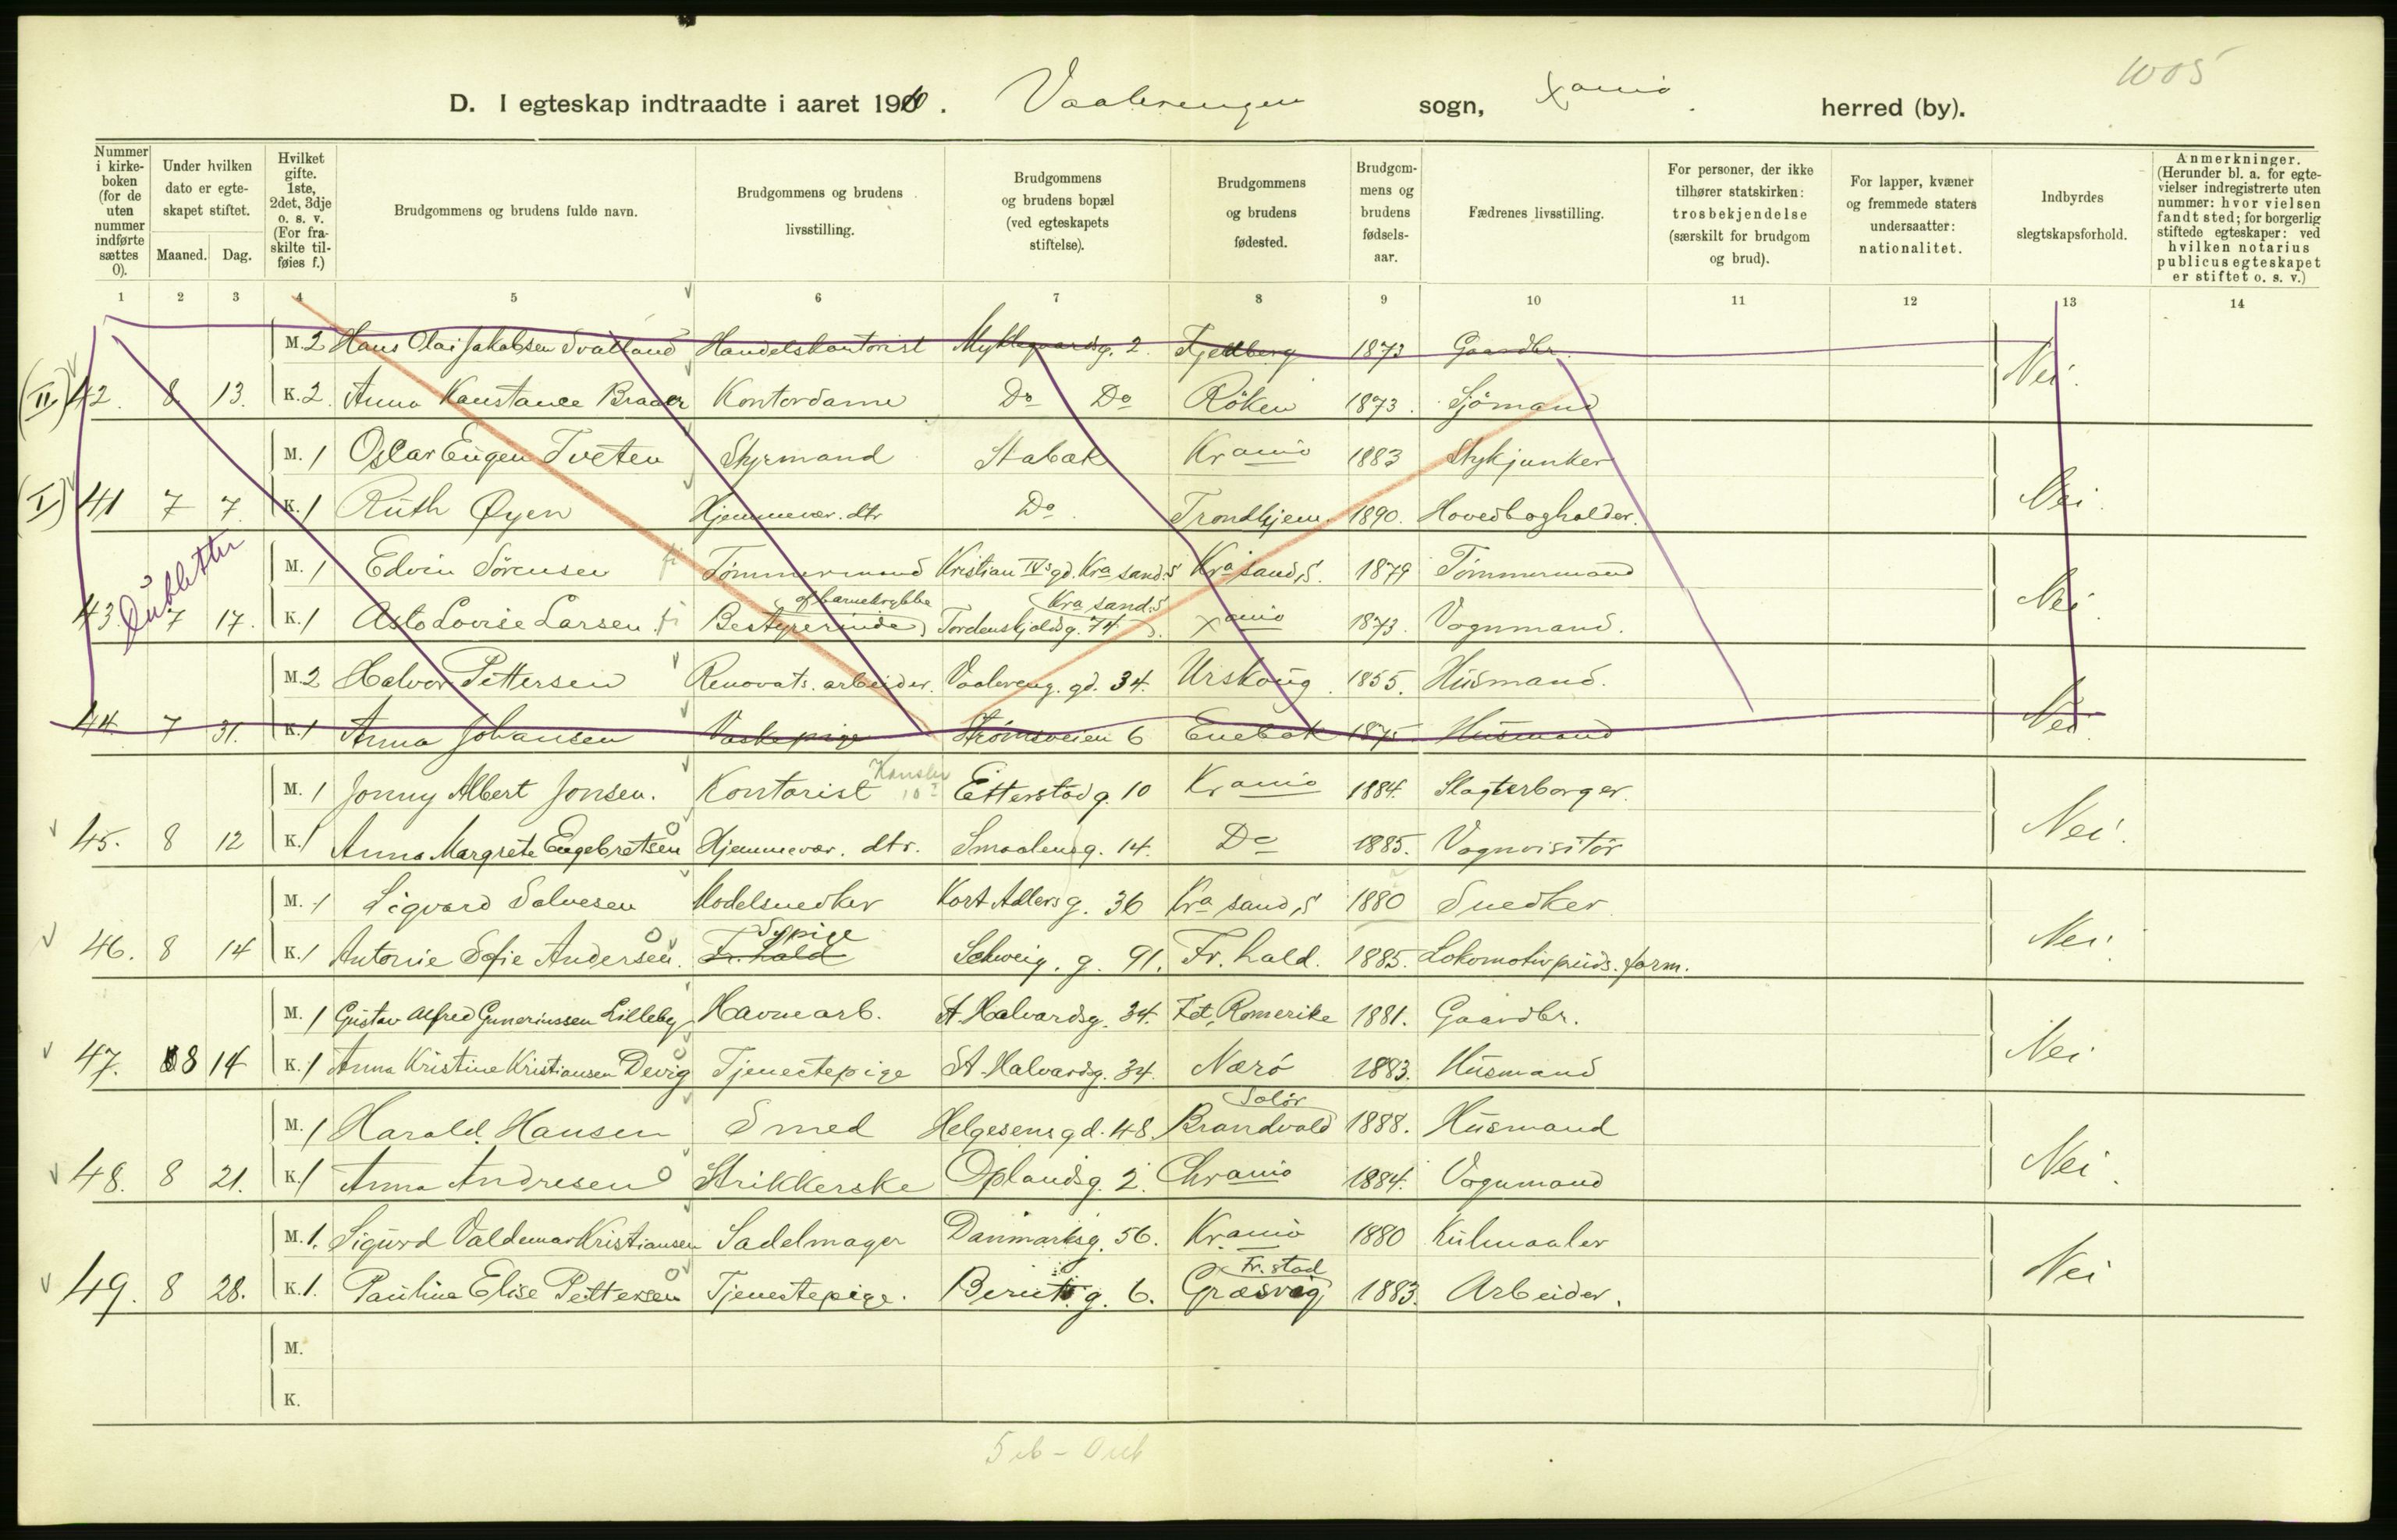 1005
D. I egteskap indtraadte i aaret 1910. Vaalerengen sogn, Xania herred (by).
Nummer i kirkeboken (for de uten nummer indførte sættes 0).
Under hvilken dato er egteskapet stiftet.
Maaned. Dag.
Hvilket gifte. 1ste, 2det, 3dje o. s. v. (For fraskilte tilføies f.)
Brudgommens og brudens fulde navn.
Brudgommens og brudens livsstilling.
Brudgommens og brudens bopæl (ved egteskapets stiftelse).
Brudgommens og brudens fødested.
Brudgommens og brudens fødselsaar.
Fædrenes livsstilling.
For personer, der ikke tilhører statskirken: trosbekjendelse (særskilt for brudgom og brud).
For lapper, kvæner og fremmede staters undersaatter: nationalitet.
Indbyrdes slegtskapsforhold.
Anmerkninger. (Herunder bl. a. for egtevielser indregistrerte uten nummer: hvor vielsen fandt sted; for borgerlig stiftede egteskaper: ved hvilken notarius publicus egteskapet er stiftet o. s. v.)
1 2 3 4 5 6 7 8 9 10 11 12 13 14
M. 2 Hans Olai Jakobsen Svatland Handelskontorist Myklegaardsg. 2. Fjelberg 1873 Gaardbr.
(II) 42. 8 13. K. 2. Anna Konstance Braaer Kontordame Do Do Röken 1873. Sjömand Nei.
M. 1 Oscar Eugen Tveten Styrmand Stabæk Krania 1883 Stykjunker
(I) 41 7 7. K. 1 Ruth Øyen Hjemmevær. dtr Do. Trondhjem. 1890. Hovedbogholder. Nei.
M. 1 Edvin Sörensen fi Tömmermand Kristian IVs gd. Kra sand. S Kra sand, S. 1879 Tömmermand
Dubletter
43. 7 17. K. 1 Asto Lovise Larsen. fi Bestyrerinde af barnekrybbe Tordenskjoldsg. 74 Kra sand. S Xania 1873. Vognmand. Nei.
M. 2 Halvor Pettersen Renovats. arbeider. Vaalereng. gd. 34. Urskoug. 1855. Husmand.
44. 7 31. K. 1 Anna Johansen Vaskepige Strömsveien 6 Enebak 1875 Husmand Nei
M. 1 Jonny Albert Jonsen. Kontorist Etterstadg. 10 Krania 1884. Slagterborger.
45. 8 12 K. 1 Anna Margrete Engebretsen Hjemmevær. dtr. Smaalensg. 14. Do 1885. Vognvisitör Nei.
M. 1 Sigvard Salvesen Modelsnedker Kort Adlersg. 36 Kra sand, S 1880 Snedker.
46. 8 14 K. 1 Antonie Sofie Andersen. Fr. hald Sypige Schweig. g. 91. Fr. hald. 1885. Lokomotivpuds. form. Nei.
M. 1 Gustav Alfred Gunerinssen Lilleby Havnearb. St. Halvardsg. 34. Fet, Romerike 1881. Gaardbr.
47. 8 14 K. 1 Anna Kristine Kristiansen Devig Tjenestepige St. Halvardsg. 34. Nærö 1883. Husmand Nei
M. 1 Harald Hansen Smed Helgesens gd. 48. Brandvold Solör 1888. Husmand
48. 8 21. K. 1 Anna Andresen Strikkerske Oplandsg. 2. Chrania 1884. Vognmand Nei.
M. 1. Sigurd Valdemar Kristiansen Sadelmager Danmarksg. 56. Krania 1880 Kulmaaler
49. 8 28. K. 1. Pauline Elise Pettersen Tjenestepige. Beruts g. 6. Græsvig Fr. stad 1883. Arbeider. Nei
M.
K.